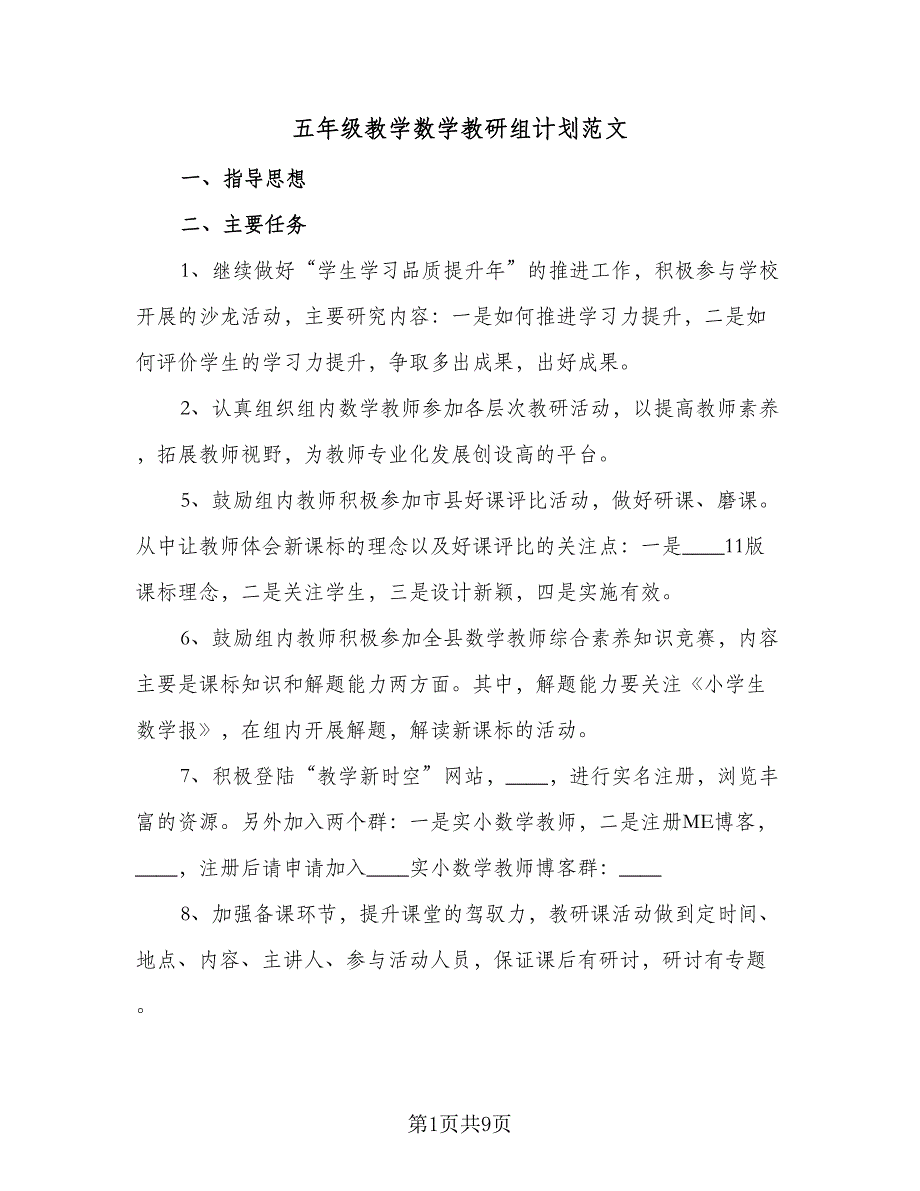 五年级教学数学教研组计划范文
一、指导思想
二、主要任务
1、继续做好“学生学习品质提升年”的推进工作，积极参与学校
开展的沙龙活动，主要研究内容：一是如何推进学习力提升，二是如
何评价学生的学习力提升，争取多出成果，出好成果。
2、认真组织组内数学教师参加各层次教研活动，以提高教师素养
，拓展教师视野，为教师专业化发展创设高的平台。
5、鼓励组内教师积极参加市县好课评比活动，做好研课、磨课。
从中让教师体会新课标的理念以及好课评比的关注点：一是____11版
课标理念，二是关注学生，三是设计新颖，四是实施有效。
6、鼓励组内教师积极参加全县数学教师综合素养知识竞赛，内容
主要是课标知识和解题能力两方面。其中，解题能力要关注《小学生
数学报》，在组内开展解题，解读新课标的活动。
7、积极登陆“教学新时空”网站，____，进行实名注册，浏览丰
富的资源。另外加入两个群：一是实小数学教师，二是注册ME博客，
____，注册后请申请加入____实小数学教师博客群：____
8、加强备课环节，提升课堂的驾驭力，教研课活动做到定时间、
地点、内容、主讲人、参与活动人员，保证课后有研讨，研讨有专题
。
第1页共9页